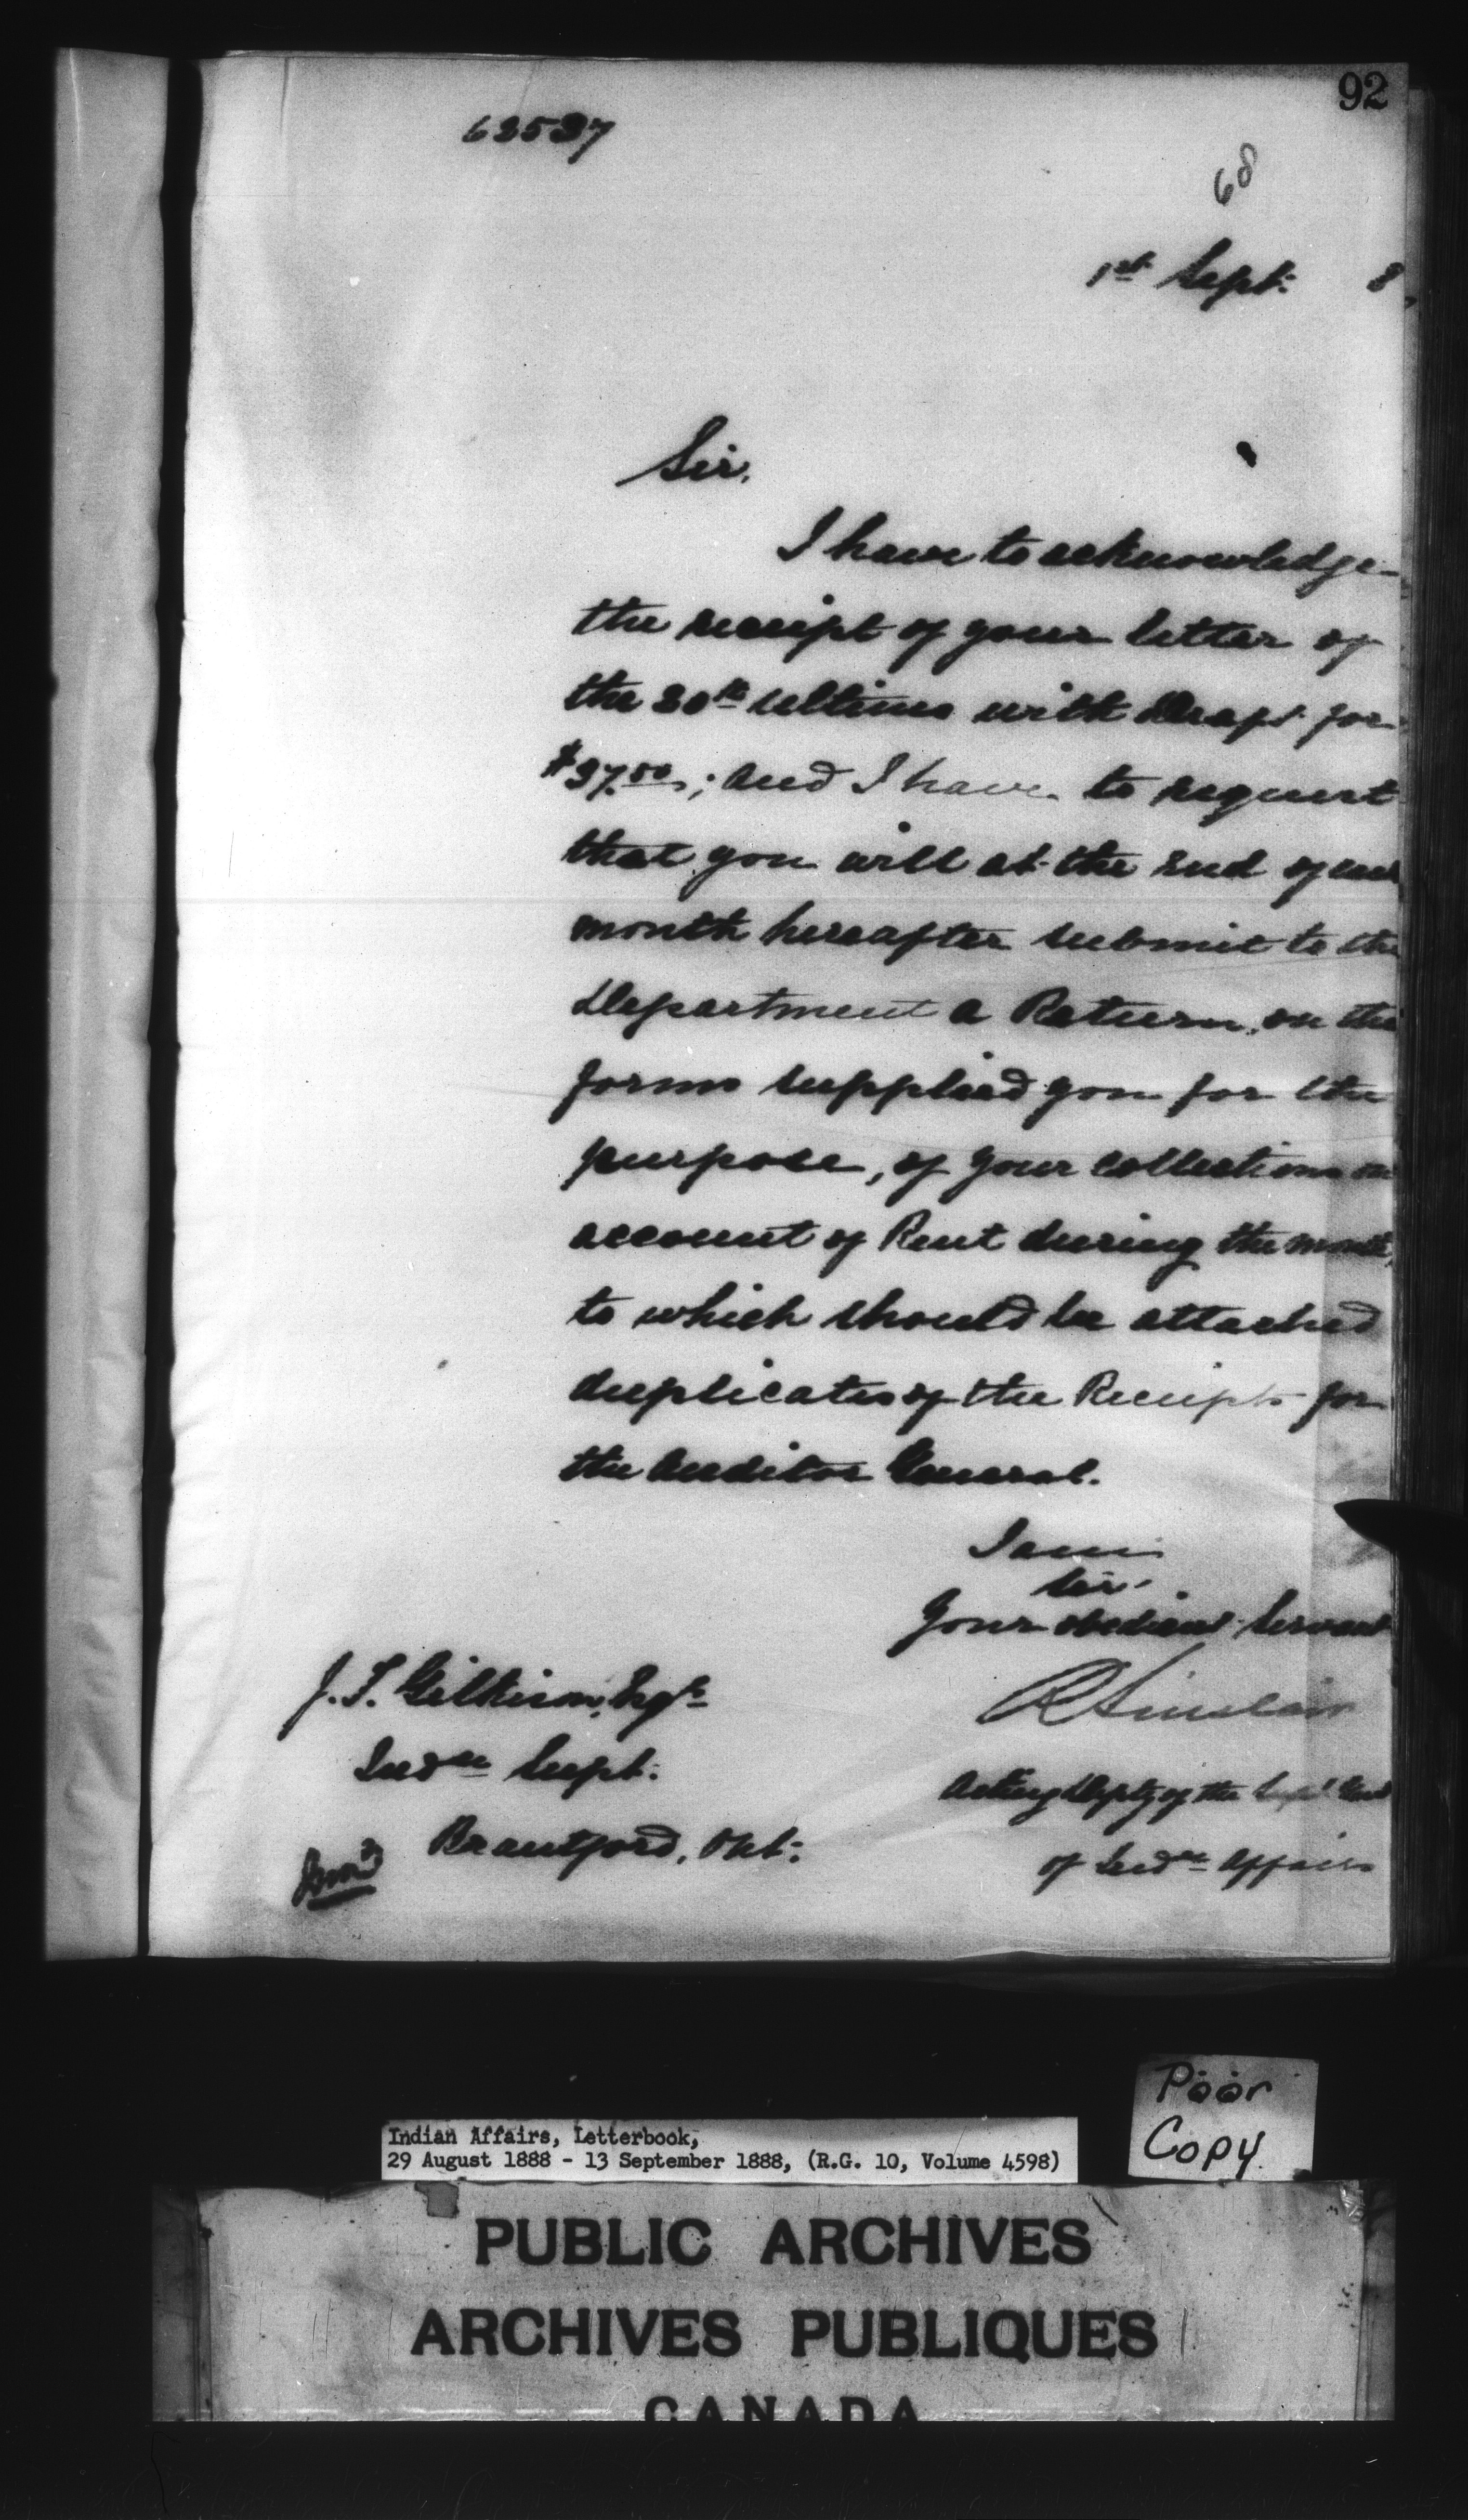 92
63537
68
1st Sept. 8
Sir,
I have to acknowledge
the receipt of your letter of
the 30th ultimo with Draft for
$37.50; and I have to request
that you will at the end of
month hereafter submit to the
Department a Return, on the
forms supplied you for the
purpose, of your collections on
account of Rent during the month,
to which should be attached
duplicates of the Receipts for
the Auditor General.
I am
Sir.
Your obedient Servant
R Sinclair
J. T. Gilkison, Esqre
Indn Supt.
Acting Depty of the Supt Genl
Brantford, Ont:
of Indn Affairs
Poor
Copy.
Indian Affairs, Letterbook,
29 August 1888 - 13 September 1888, (R.G. 10, Volume 4598)
PUBLIC ARCHIVES
ARCHIVES PUBLIQUES
CANADA